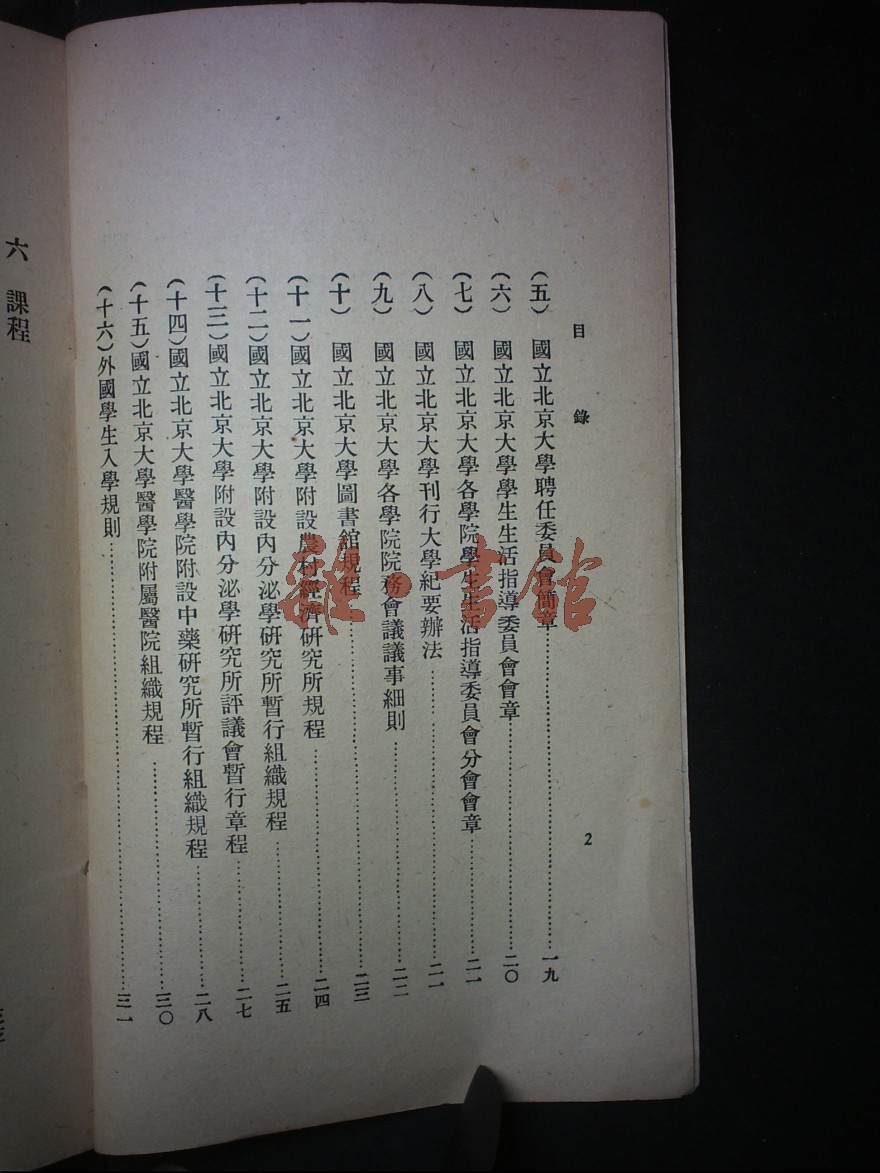 目　錄
2
(五)　國立北京大學聘任委員會簡章……一九
(六)　國立北京大學學生生活指導委員會會章……二〇
(七)　國立北京大學各學院學生生活指導委員會分會會章……二一
(八)　國立北京大學刊行大學紀要辦法……二一
(九)　國立北京大學各學院院務會議議事細則……二二
(十)　國立北京大學圖書館規程……二三
(十一)國立北京大學附設農村經濟研究所規程……二四
(十二)國立北京大學附設內分泌學研究所暫行組織規程……二五
(十三)國立北京大學附設內分泌學研究所評議會暫行章程……二七
(十四)國立北京大學醫學院附設中藥研究所暫行組織規程……二八
(十五)國立北京大學醫學院附屬醫院組織規程……三〇
(十六)外國學生入學規則……三一
六　課程
雜·書館